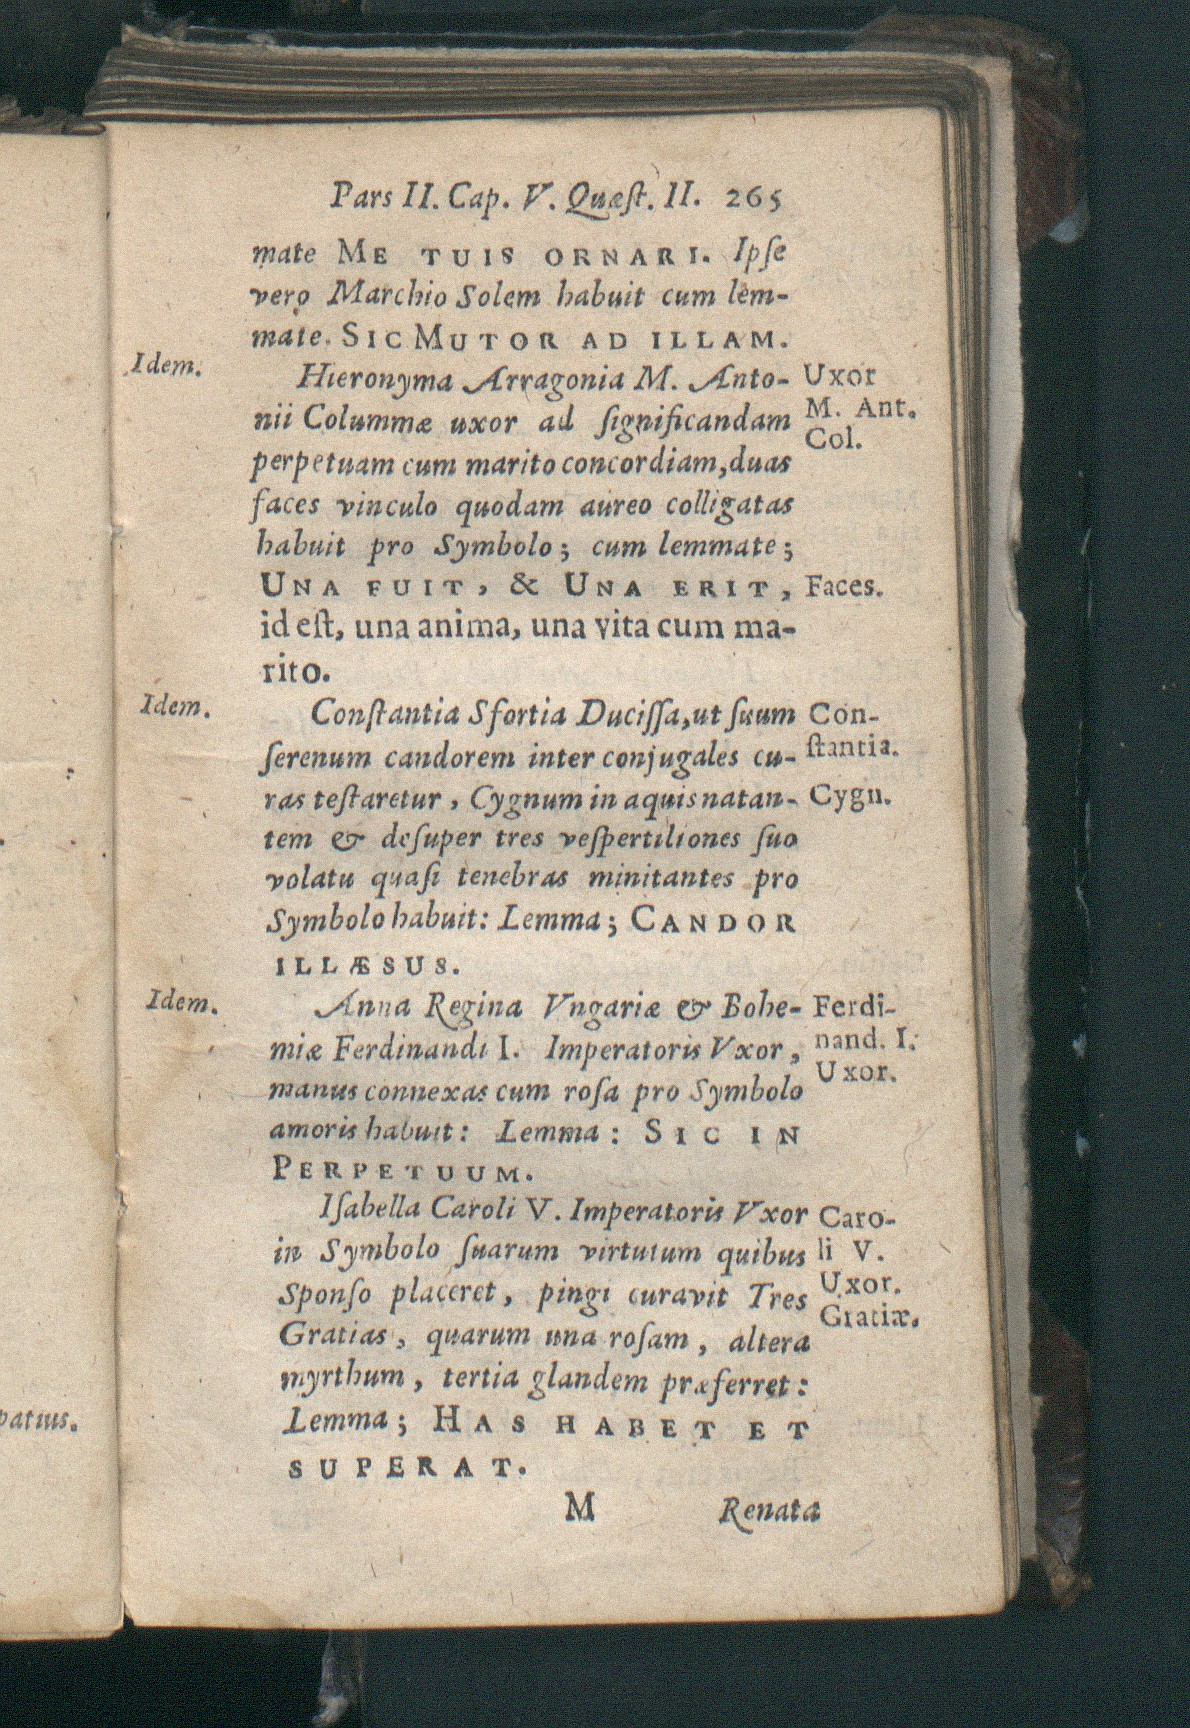 Pars II. Cap. V. Quæſt. II. 265
mate ME TUIS ORNARI. Ipſe
vero Marchio Solem habuit cum lem-
mate. SIC MUTOR AD ILLAM.
Idem.
Hieronyma Arragonia M. Anto-
nii Columnæ uxor ad ſignificandam
perpetuam cum marito concordiam, duas
faces vinculo quodam aureo colligatas
habuit pro Symbolo; cum lemmate;
UNA FUIT, & UNA ERIT,
id eſt, una anima, una vita cum ma-
rito.
Uxor
M. Ant.
Col.
Faces.
Idem.
Conſtantia Sfortia Duciſſa, ut ſuum
ſerenum candorem inter conjugales cu-
ras teſtaretur, Cygnum in aquis natan-
tem & deſuper tres veſpertiliones ſuo
volatu quaſi tenebras minitantes pro
Symbolo habuit: Lemma; CANDOR
ILLÆSUS.
Con-
ſtantia.
Cygn.
Idem.
Anna Regina Vngariæ & Bohe-
miæ Ferdinandi I. Imperatoris Vxor,
manus connexas cum roſa pro Symbolo
amoris habuit: Lemma: SIC IN
PERPETUUM.
Ferdi-
nand. I.
Uxor.
Iſabella Caroli V. Imperatoris Vxor
in Symbolo ſuarum virtutum quibus
Sponſo placeret, pingi curavit Tres
Gratias, quarum una roſam, altera
myrthum, tertia glandem præferret:
Lemma; HAS HABET ET
SUPERAT.
Caro-
li V.
Uxor.
Gratiæ.
M Renata